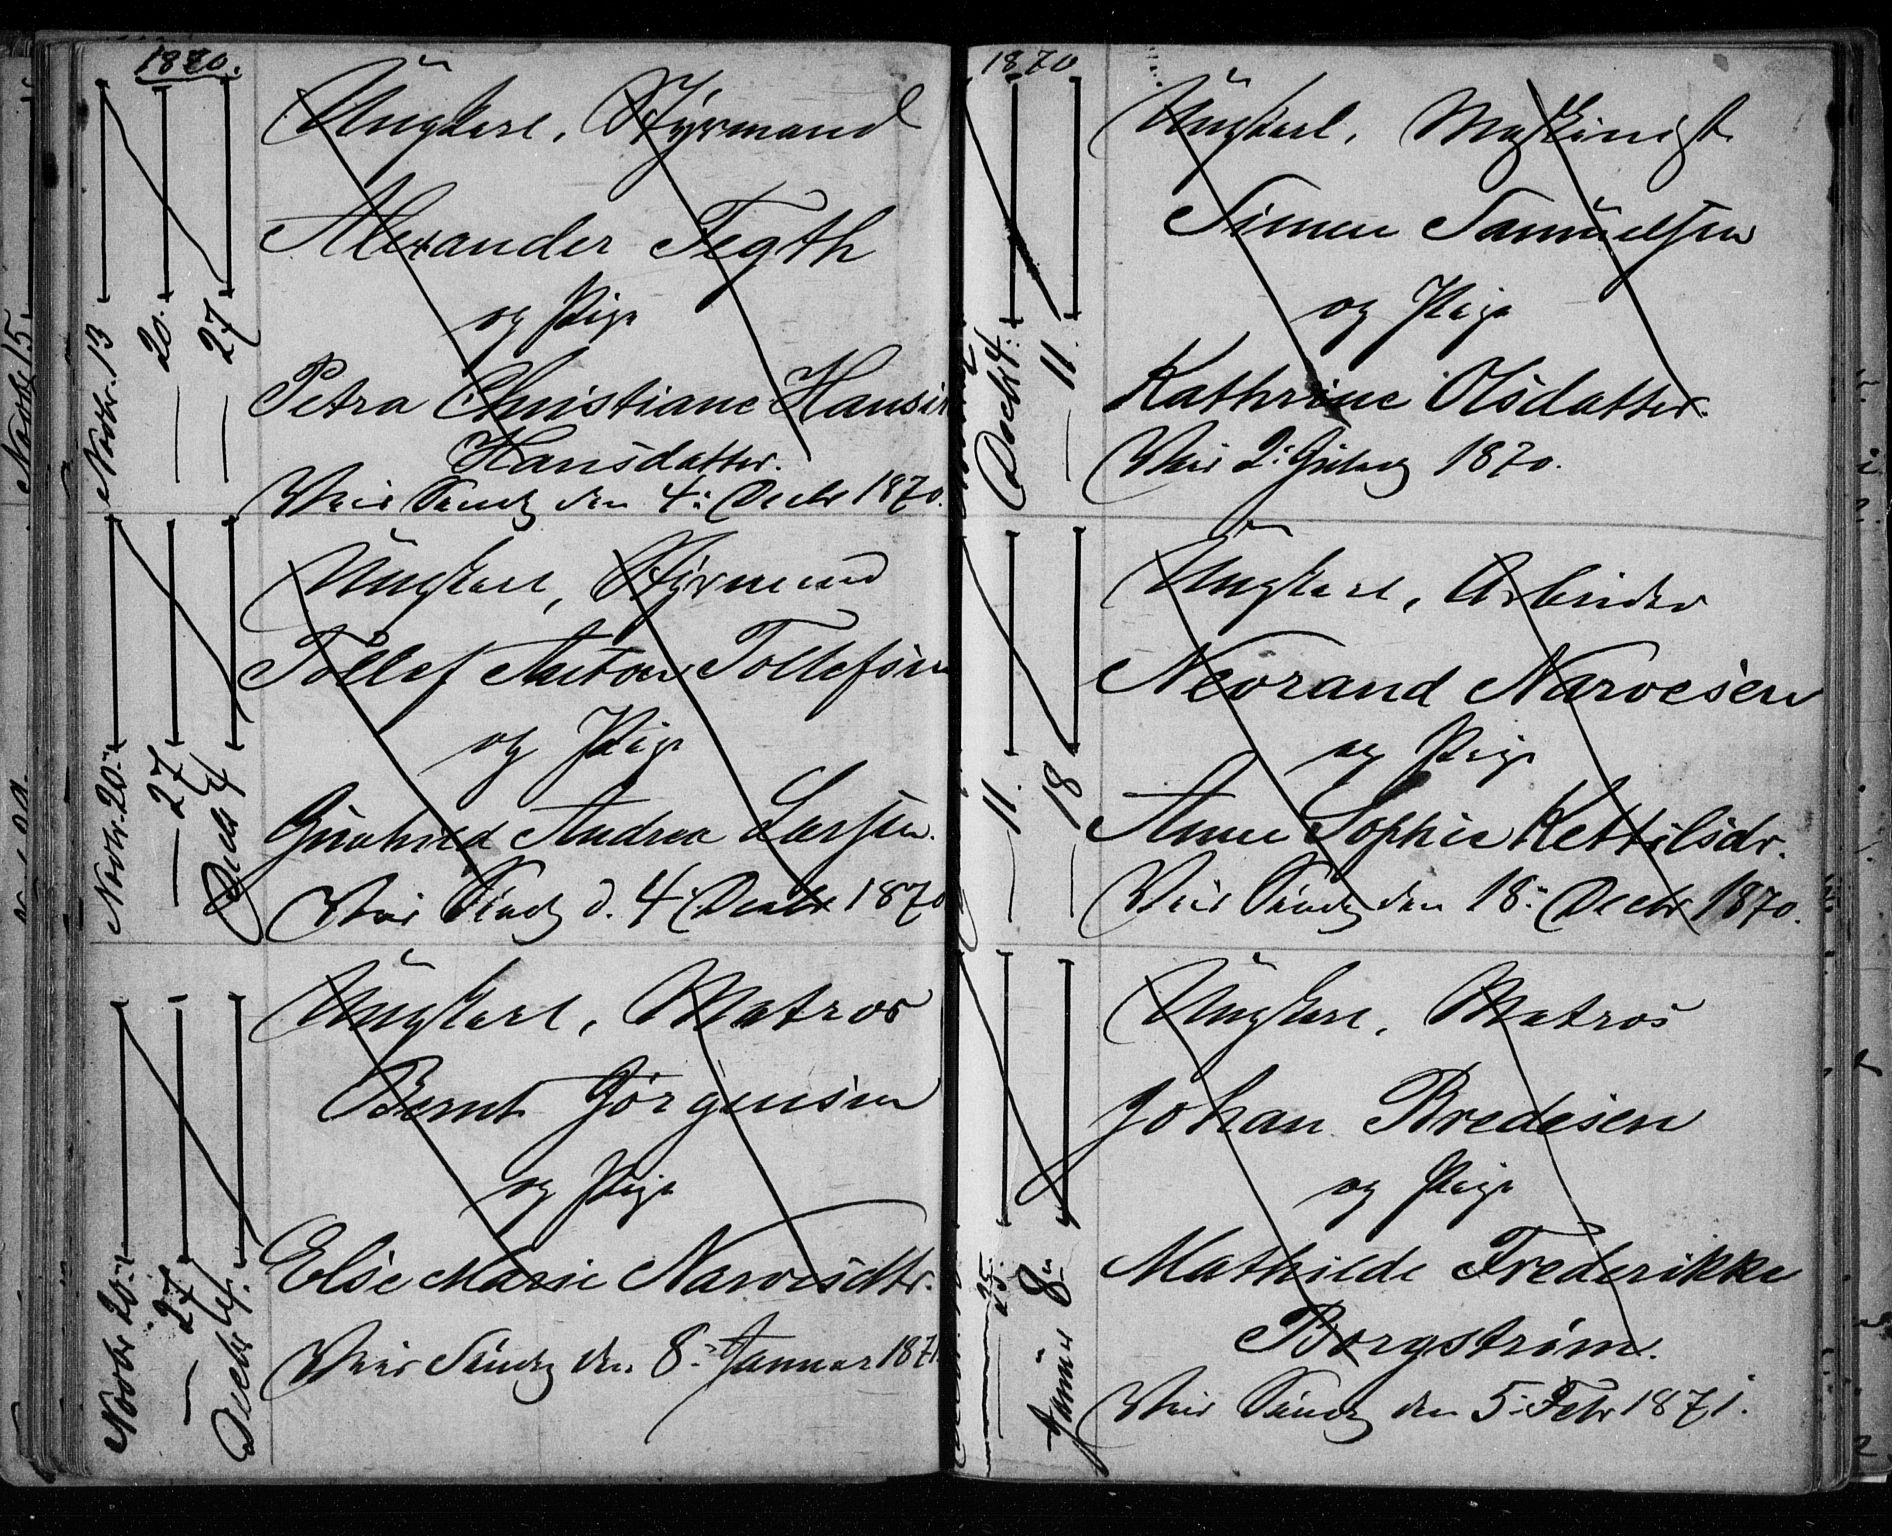 1870.
Novbr. 13
— 20.
— 27
Ungkarl, Styrmand
Alexander Tegth
og Pige
Petra Christiane Hansin
Hansdatter.
Viet Søndg den 4: Decbr 1870.
Novbr. 20:
— 27
Decbr 4
Ungkarl, Styrmand
Tollef Anton Tollefsen
og Pige
Gunhild Andrea Larsen.
Viet Søndg d. 4 Decbr 1870
Novbr 20:
— 27
Decbr 4.
Ungkarl, Matros
Bernt Jørgensen
og Pige
Else Marie Narvesdtr.
Viet Søndg den 8: Januar 1871.
1870
Decbr 4:
— 11.
Ungkarl, Maskinist
Simen Samuelsen
og Pige
Kathrine Olsdatter.
Viet 2: Juledg 1870.
— 11.
— 18
Ungkarl, Arbeider
Nevrand Narvesen
og Pige
Anne Sophie Kettilsdr.
Viet Søndg den 18: Decbr 1870.
25.
Januar 8
Ungkarl, Matros
Johan Bredesen
og Pige
Mathilde Frederikke
Borgstrøm.
Viet Søndg den 5: Febr 1871.